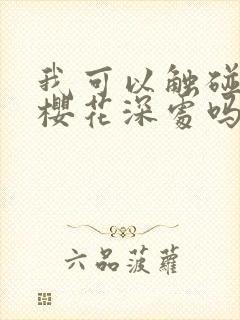 我可以触碰
樱花深处吗
六品菠萝